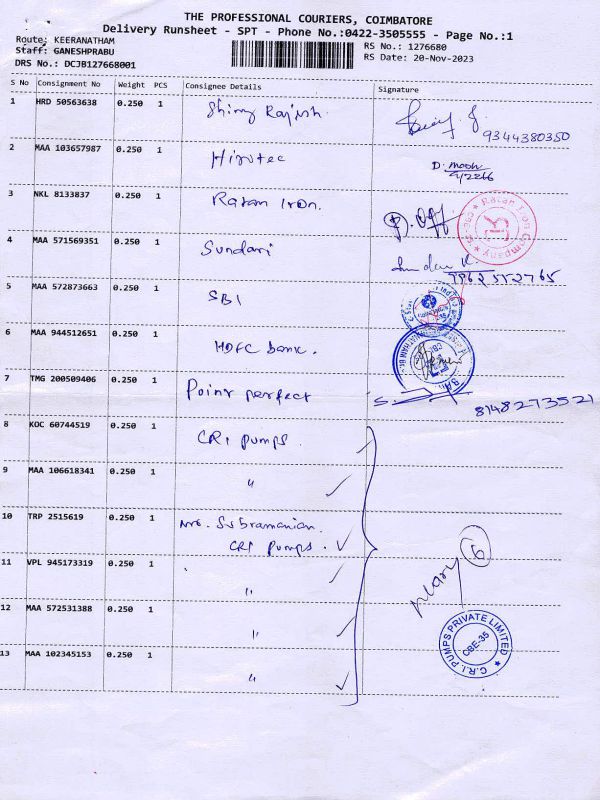 THE PROFESSIONAL COURIERS, COIMBATORE
Delivery Runsheet - SPT - Phone No.:0422-3505555 - Page No.:1
Route: KEERANATHAM
RS No.: 1276680
Staff: GANESHPRABU
RS Date: 20-Nov-2023
DRS No.: DCJB127668001
S No Consignment No Weight PCS Consignee Details Signature
1 HRD 50563638 0.250 1 Rajesh
9344380350
2 MAA 103657987 0.250 1 Hirotec D. Mooh
3 NKL 8133837 0.250 1 Ratan Iron.
Ratan Iron Company
4 MAA 571569351 0.250 1 Sundari
5 MAA 572873663 0.250 1 SBI
6 MAA 944512651 0.250 1 HDFC bank.
7 TMG 200509406 0.250 1 Point perfect
8148273521
8 KOC 60744519 0.250 1 CRI PUMPS.
9 MAA 106618341 0.250 1 "
10 TRP 2515619 0.250 1 Mr. Subramanian.
CRI PUMPS.
6
11 VPL 945173319 0.250 1 "
12 MAA 572531388 0.250 1 "
C.R.I. PUMPS PRIVATE LIMITED
CBE-35
13 MAA 102345153 0.250 1 "